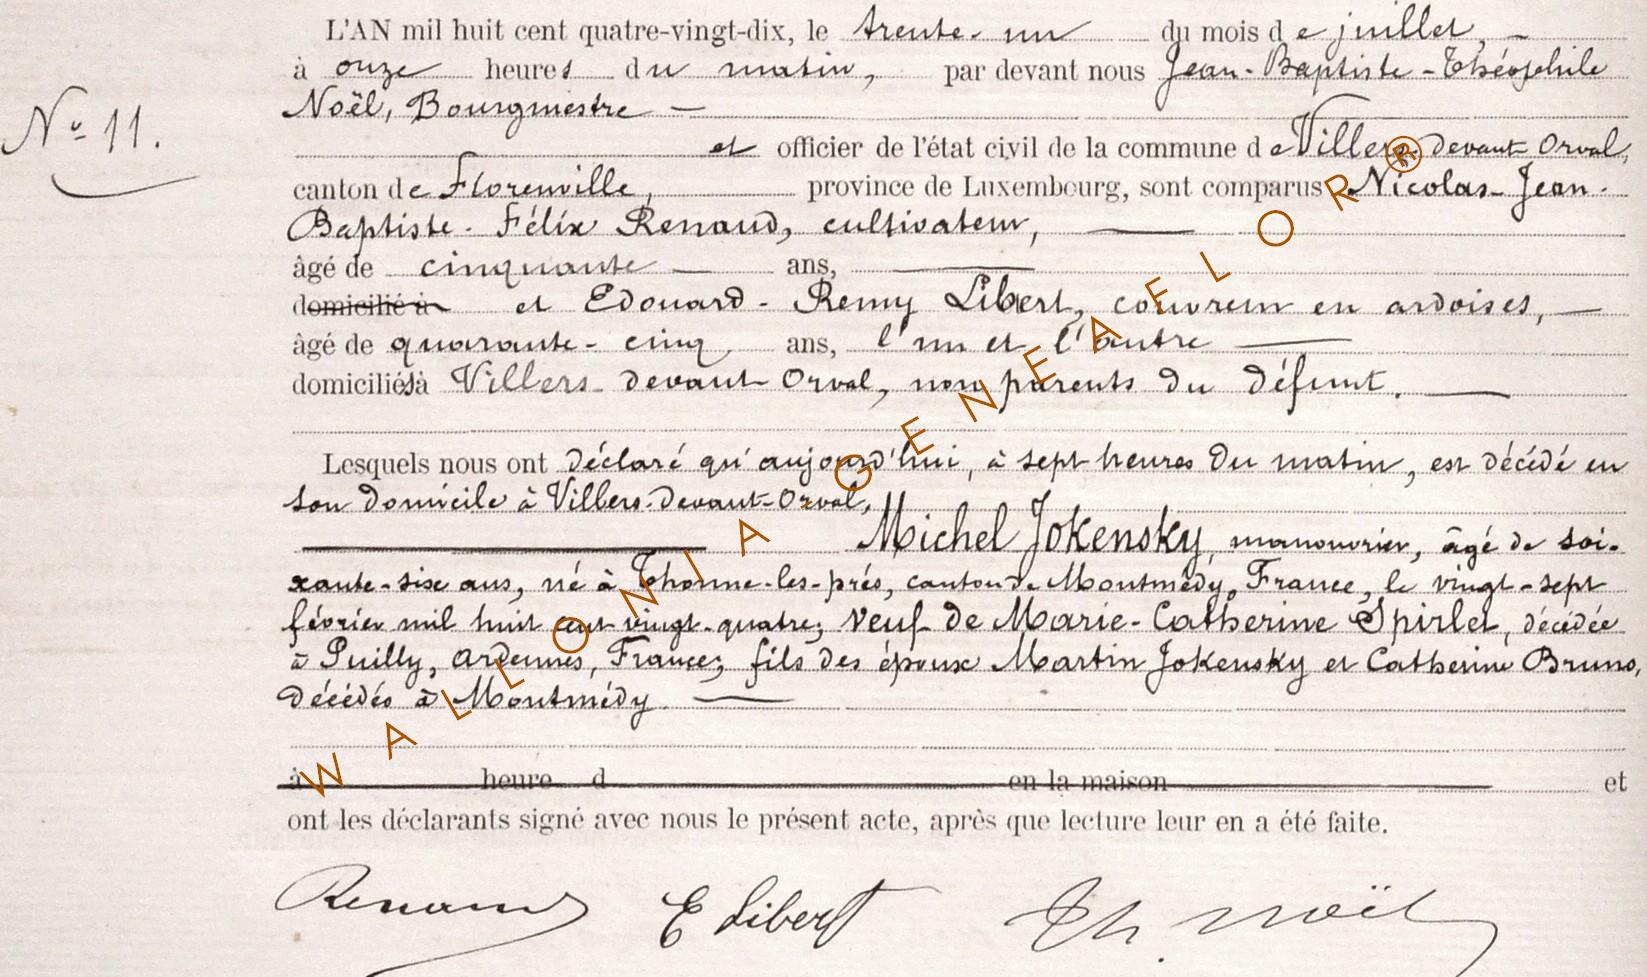 L'AN mil huit cent quatre-vingt-dix, le trente-un du mois de juillet, -
à onze heures du matin, par devant nous Jean-Baptiste-Théophile
Noël, Bourgmestre -
N° 11.
et officier de l'état civil de la commune de Villers devant Orval,
canton de Florenville, province de Luxembourg, sont comparus Nicolas-Jean-
Baptiste-Félix Renaud, cultivateur, —
âgé de cinquante — ans, —
domicilié à et Edouard-Remy Libert, couvreur en ardoises, —
âgé de quarante-cinq ans, l'un et l'autre —
domiciliés à Villers-devant-Orval, non parents du défunt. —
Lesquels nous ont déclaré qu'aujourd'hui, à sept heures du matin, est décédé en
son domicile à Villers-devant-Orval,
— Michel Jokensky, manouvrier, âgé de soi-
xante-six ans, né à Thonne-les-prés, canton de Montmédy, France, le vingt-sept
février mil huit cent vingt-quatre; veuf de Marie-Catherine Spirlet, décédée
à Puilly, ardennes, France; fils des époux Martin Jokensky et Catherine Bruno,
décédés à Montmédy. —
à heure d en la maison et
ont les déclarants signé avec nous le présent acte, après que lecture leur en a été faite.
Renaud E Libert Th. Noël
WALLONIA-GENEAFLOR®